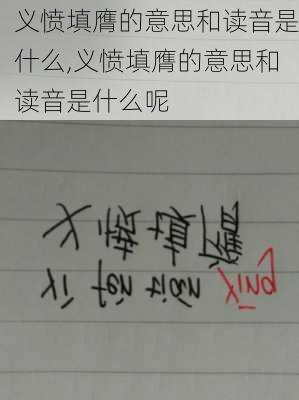 义愤填膺的意思和读音是
什么,义愤填膺的意思和
读音是什么呢
义愤填膺